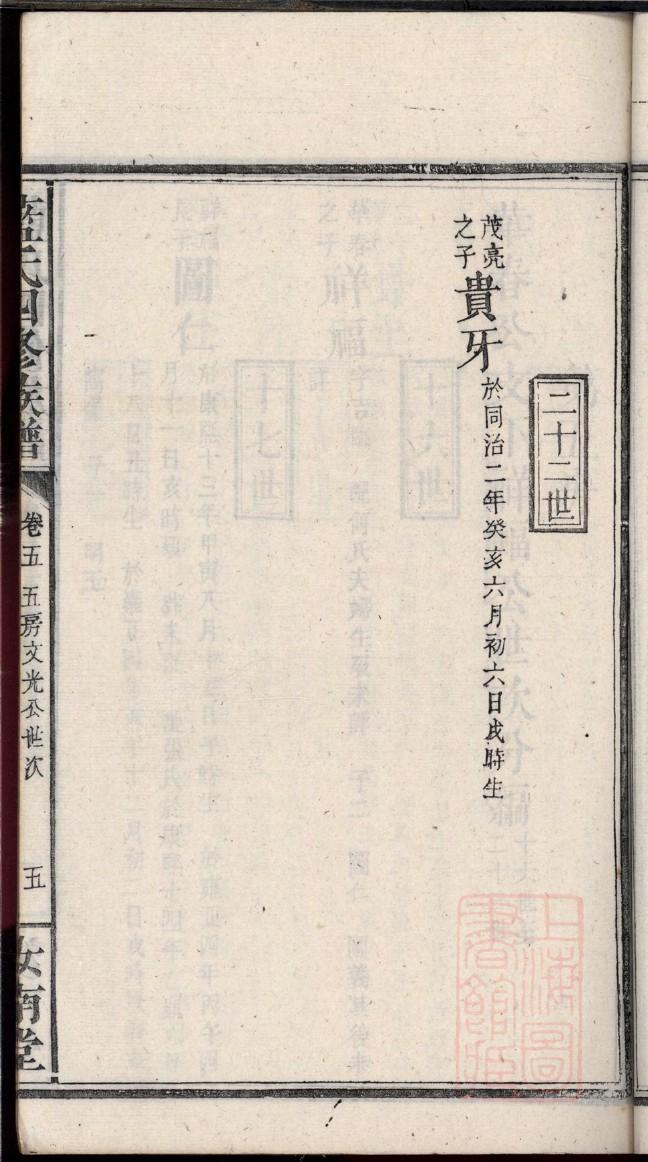 二十二世
茂亮之子
貴牙
於同治二年癸亥六月初六日戌時生
藍氏四修族譜
卷五
五房文光公世次
五
汝南堂
上海圖書館藏